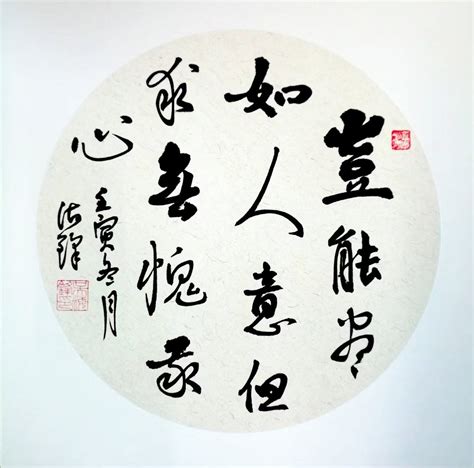 豈能尽
如人意但
求無愧我
心
壬寅冬月